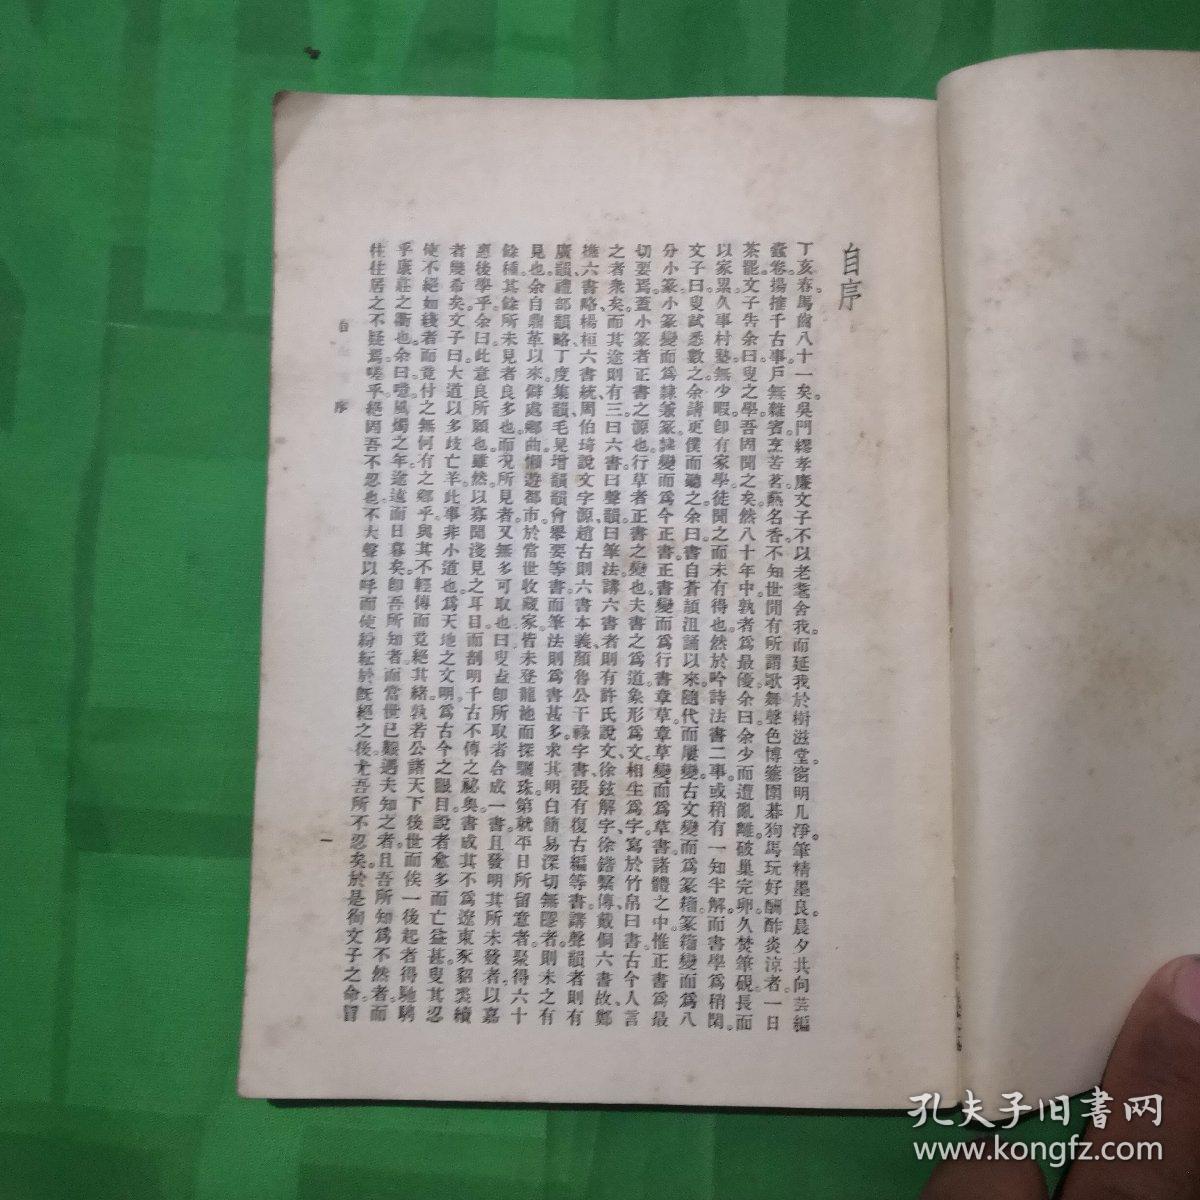 自序
丁亥春馬齒八十一矣。吳門繆孝廉文子不以老耄舍我而延我於樹滋堂。窗明几淨。筆精墨良。晨夕共向芸編
蠹卷揚搉千古事。戶無雜賓。烹苦茗。爇名香。不知世閒有所謂歌舞聲色博簺圍棊狗馬玩好酬酢炎涼者。一日
茶罷文子告余曰。叟之學。吾固聞之矣。然八十年中。孰者爲最優。余曰。余少而遭亂離。破巢完卵。久焚筆硯。長而
以家累久事村塾。無少暇。卽有家學。徒聞之而未有得也。然於吟詩法書二事。或稍有一知半解。而書學爲稍閑。
文子曰。叟試悉數之。余請更僕而聽之。余曰。書自蒼頡沮誦以來。隨代而屢變。古文變而爲篆籀。篆籀變而爲八
分小篆。小篆變而爲隸。篆隸變而爲今正書。正書變而爲行書章草。章草變而爲草書。諸體之中。惟正書爲最
切要焉。蓋小篆者正書之源也。行草者正書之變也。夫書之爲道。象形爲文。相生爲字。寫於竹帛曰書。古今人言
之者衆矣。而其途則有三。曰六書。曰聲韻。曰筆法。講六書者。則有許氏說文、徐鉉解字、徐鍇繫傳、戴侗六書故、鄭
樵六書略、楊桓六書統、周伯琦說文字源、趙古則六書本義、顏魯公干祿字書、張有復古編等書。講聲韻者。則有
廣韻、禮部韻略、丁度集韻、毛晃增韻、韻會舉要等書。而筆法則爲書甚多。求其明白簡易深切無隱者。則未之有
見也。余自鼎革以來。僻處鄉曲。懶遊都市。於當世收藏家。皆未登龍池而探驪珠。第就平日所留意者。聚得六十
餘種。其餘所未見者良多也。而況所見者又無多可取也。曰。叟盍卽所取者。合成一書。且發明其所未發者。以嘉
惠後學乎。余曰。此意良所願也。雖然。以寡聞淺見之耳目。而剖明千古不傳之祕奧。書成。其不爲遼東豕貂裘續
者幾希矣。文子曰。大道以多歧亡羊。此事非小道也。爲天地之文明。爲古今之眼目。說者愈多而亡益甚。叟其忍
使不絕如綫者。而竟付之無何有之鄉乎。與其不輕傳而竟絕其緒。孰若公諸天下後世。而俟一後起者得馳騁
乎康莊之衢也。余曰。噫。風燭之年。途遠而日暮矣。卽吾所知者。而當世已難遇夫知之者。且吾所知爲不然者。而
往往居之不疑焉。嗟乎。絕固吾不忍也。不夫聲以呼而使紛紜於旣絕之後。尤吾所不忍矣。於是徇文子之命。冒
自序
一
孔夫子旧書网
www.kongfz.com